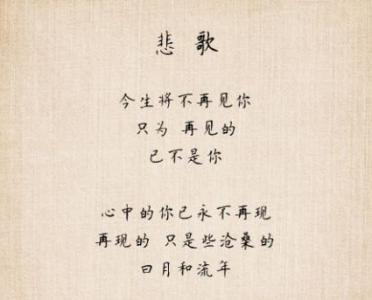 悲歌
今生将不再见你
只为 再见的
已不是你
心中的你已永不再现
再现的 只是些沧桑的
日月和流年